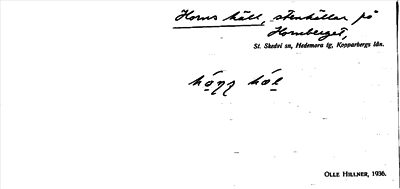 Horns häll, stenhällar på
Hornberget,
St. Skedvi sn, Hedemora tg, Kopparbergs län.
OLLE HILLNER, 1936.